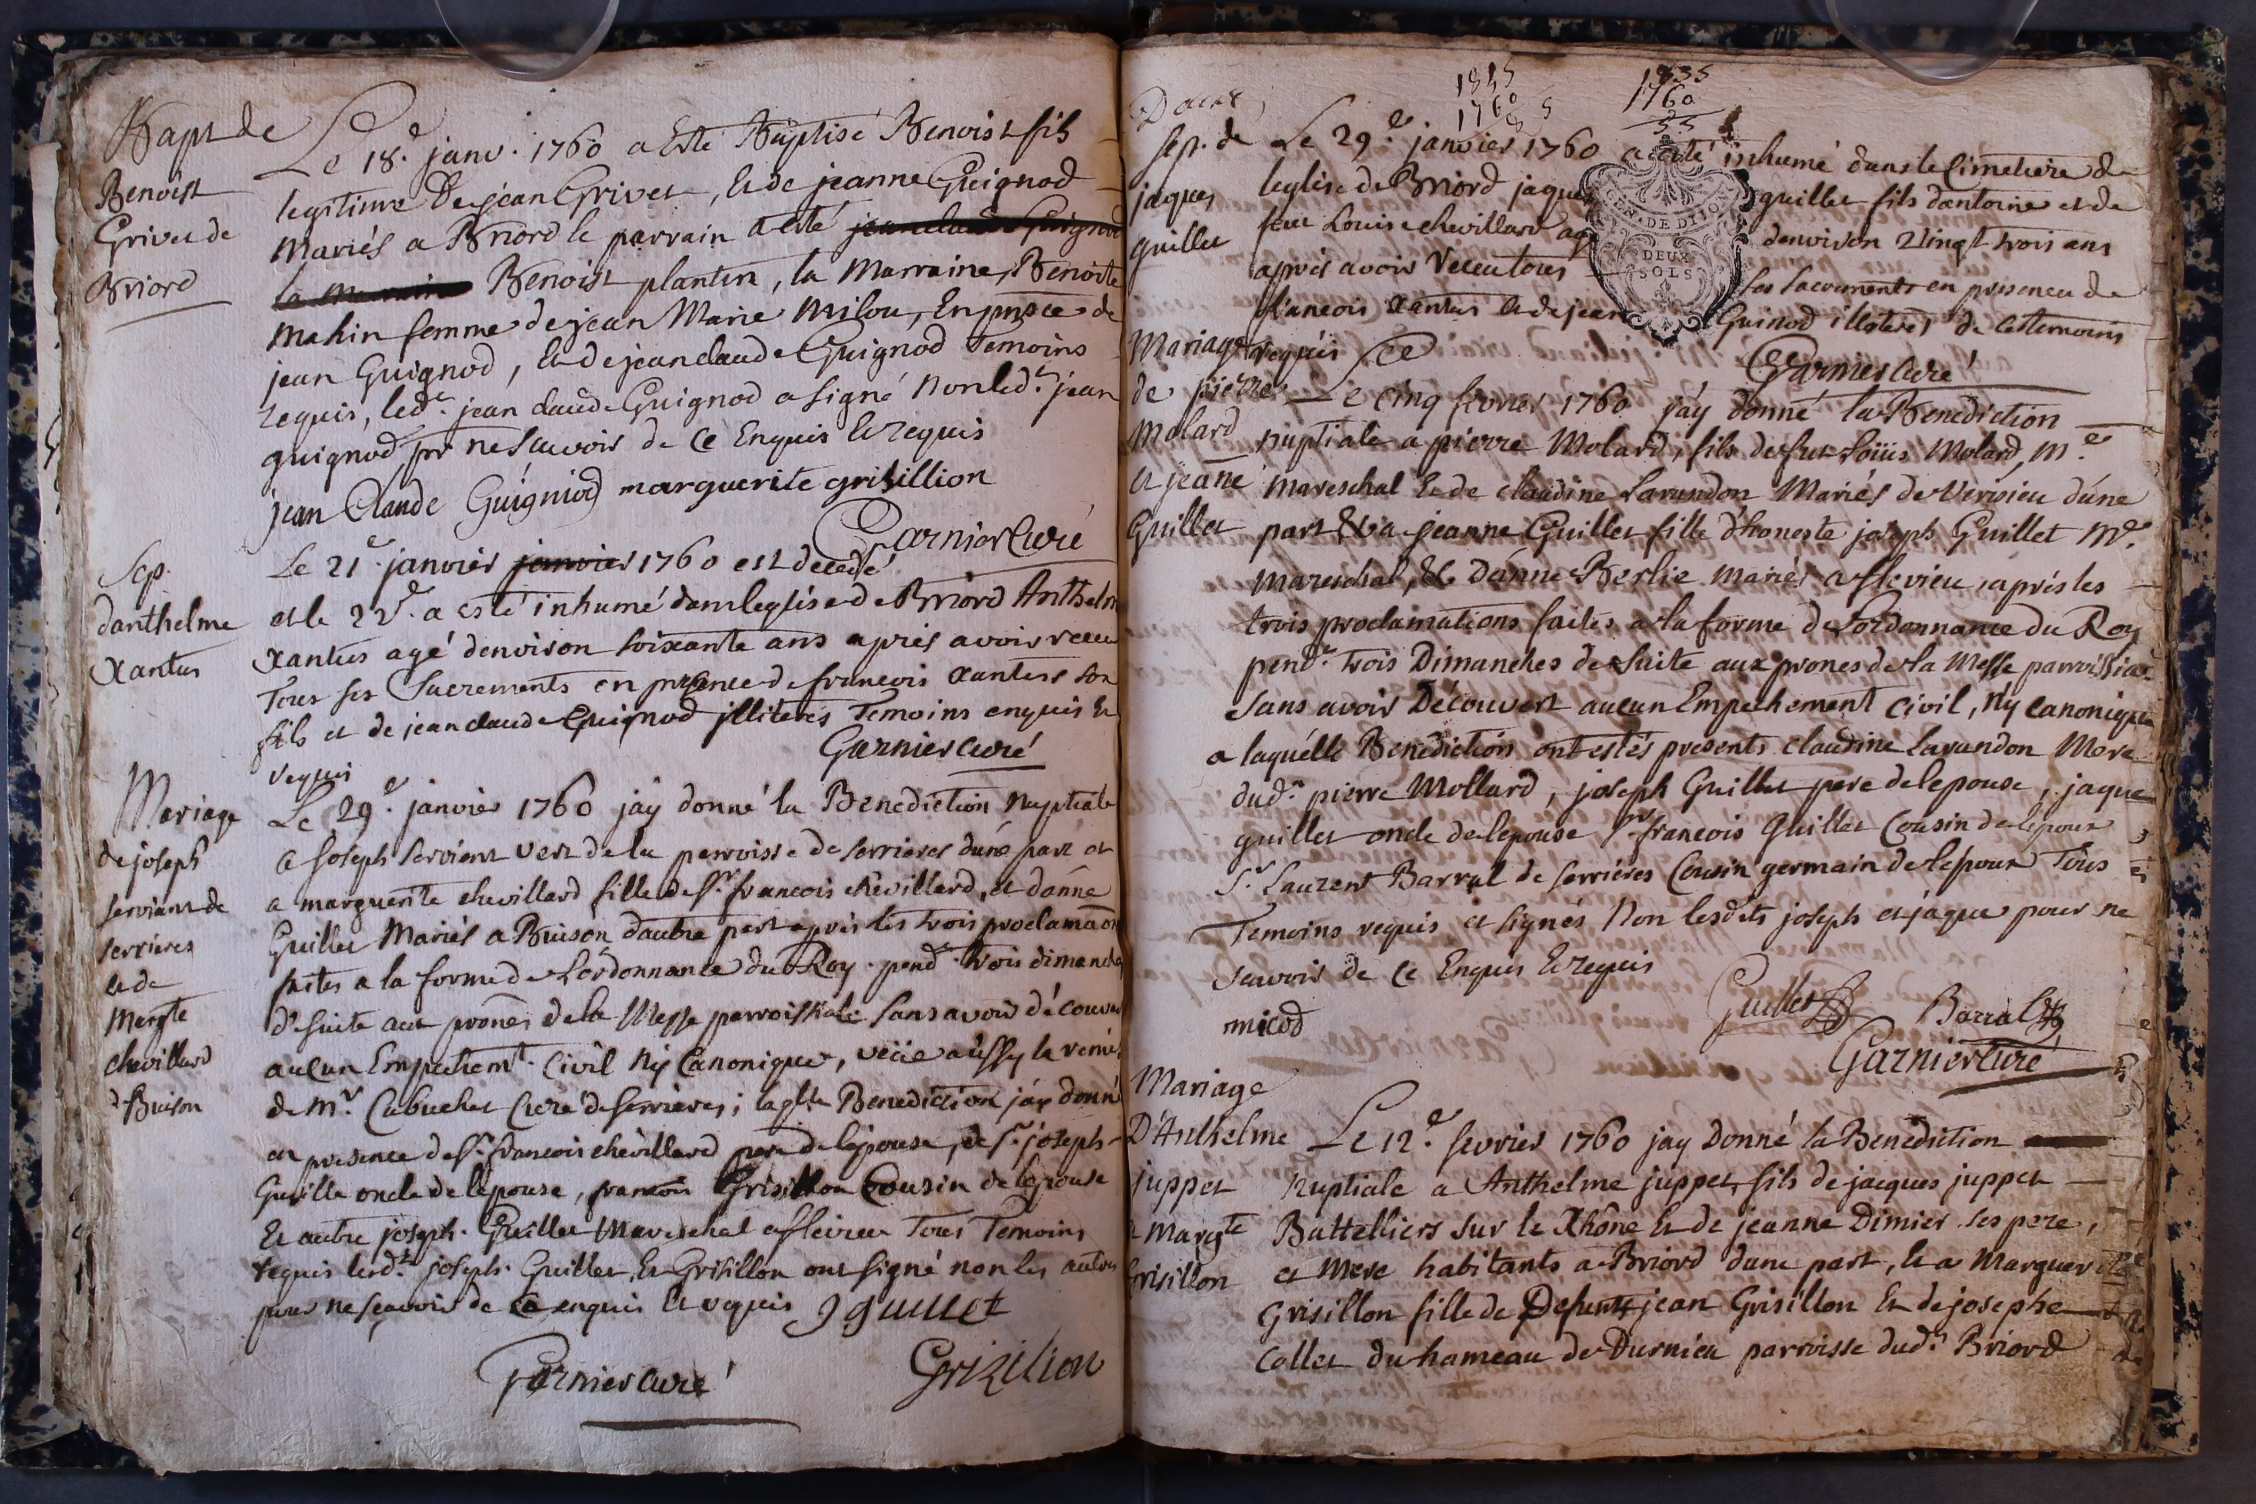 Bapt de
Benoist
Grivet de
Briord
Le 18.e janv. 1760 a Esté Baptisé Benoist fils
legitime De jean Grivet, Et de jeanne Guignod
Mariés a Briord le parrain a esté jean claude Guignod
la marraine Benoist plantin, la Marraine, Benoite
Mahin femme de jean Marie Milou, En prñce de
jean Guignod, Et de jean claude Guignod Temoins
requis, led.t jean claude Guignod a signé Non led.t jean
guignod pr ne scavoir de Ce Enquis Et requis
jean Claude Guigniod marguerite grisillion
Garnier Curé
Sep.
danthelme
Xantus
Le 21.e janvier janvier 1760 est decedé
et le 22.e a esté inhumé dans leglise de Briord Anthelm
Xantus agé denviron soixante ans apres avoir receu
Tous ses Sacrements en presence de francois Xantus son
fils et de jean claude Guignod jlliterés Temoins enquis Et
requis
Garnier curé
Mariage
de joseph
serviant de
serrieres
et de
Margte
chevillard
d Buison
Le 29.e janvier 1760 jay donné la Benediction Nuptiale
a joseph servient vert de la perroisse de serrieres dune part et
a marguerite chevillard fille de Sr. francois chevillard, et danne
Guillet Mariés a Buison dautre part apres les trois proclamaõn
faites a la forme de Lordonnance du Roy. pend.t trois dimanche
de suite aux prones de la Messe parroissiale sans avoir découver
aucun Empechem.t Civil Ny Canonique, veüe aussy la remis
de Mr. Cubuchet Curé de serrieres; laqlle Benediction jay donné
en presence de Sr. francois chevillard pere de lepouse, de Sr. joseph
Guille oncle de lepouse, francois Grisillon Cousin de lepouse
Et autre joseph Guillet Mareschal a flevieu Tous Temoins
requis lesd.ts joseph Guillet Et Grisillon ont signé non les autres
pour ne scavoir de Ce enquis et requis J guillet
Garnier curé
Grizilion
1815
1760
1835
1760
GEN. DE DIJON
DEUX
SOLS
Sep. de
jaques
guillet
Le 29.e janvier 1760 a esté inhumé dans le Cimetiere de
leglise de Briord jaque guillet fils dantoine et de
feue Louise chevillard agé denviron vingt trois ans
apres avoir receu tous ses sacrements en presence de
francois Xantus et de jean Guinod illiterés de Ce Temoins
requis
Garnier curé
Mariage
de pierre
Molard
et jeane
Guillet
Le Cinq fevrier 1760 jáy donné la Benediction
nuptiale a pierre Molard, fils de feu Loüis Molard, M.e
Mareschal Et de Claudine Lavundon Mariés de Verisieu dune
part Et a jeanne Guillet fille dhoneste joseph Guillet M.e
Mareschal, Et Danne Berlie mariés a flevieu, aprés les
trois proclamations faites a la forme de Lordonnance du Roy
pend.t trois Dimanches de suite aux prones de la Messe parroissiale
sans avoir Découvert aucun Empechement Civil, Ny canonique
a laquélle Benediction ont estés presents claudine Lavandon Mere
dud.t pierre Mollard, joseph Guillet pere de lepouse, jaque
guillet oncle de lepouse Sr francois Guillet Cousin de lepoux
Sr. Laurent Barral de serriéres Cousin germain de lépoux Tous
Temoins requis et signés Non lesdts joseph et jaque pour ne
scavoir de Ce Enquis Et requis
micod
Guillet
Barral
Garnier Curé
Mariage
D'Anthelme
juppet
& Margte
Grisillon
Le 12.e fevrier 1760 jay Donné la Benediction
Nuptiale a Anthelme juppet, fils de jacques juppet
Battelliers sur le Rhône Et de jeanne Dimier ses pere,
et Mere habitants a Briord dune part, Et a Marguerite
Grisillon fille de Defunts jean Grisillon Et de josephe
Collet du hameau de Durnieu parroisse dud.t Briord